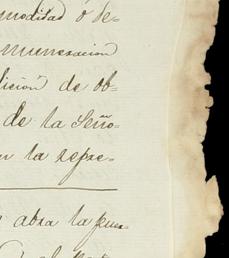 modidad ó de=
muneracion
licion de ob=
de la Seño=
la repre=
abra la puer=